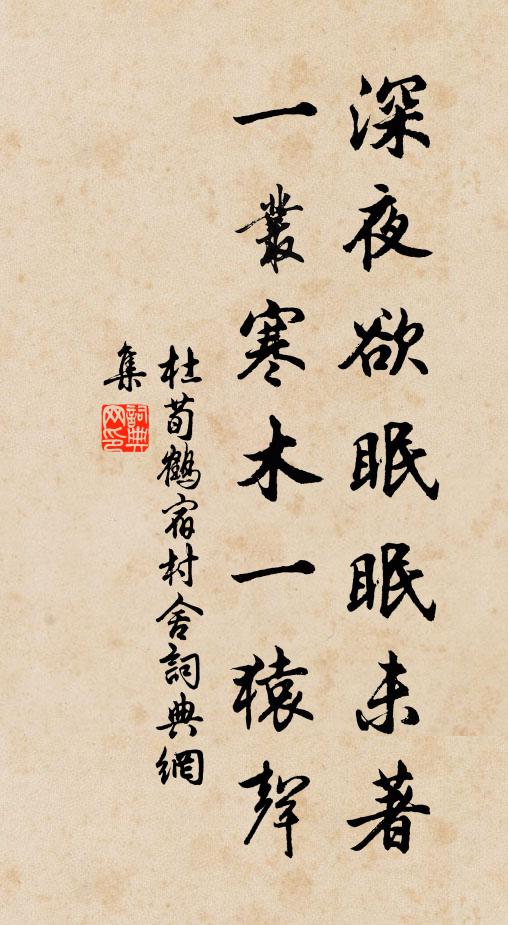 深夜欲眠眠未著
一叢寒木一猿聲
杜荀鶴宿村舍詞典網
集
詞典
网印